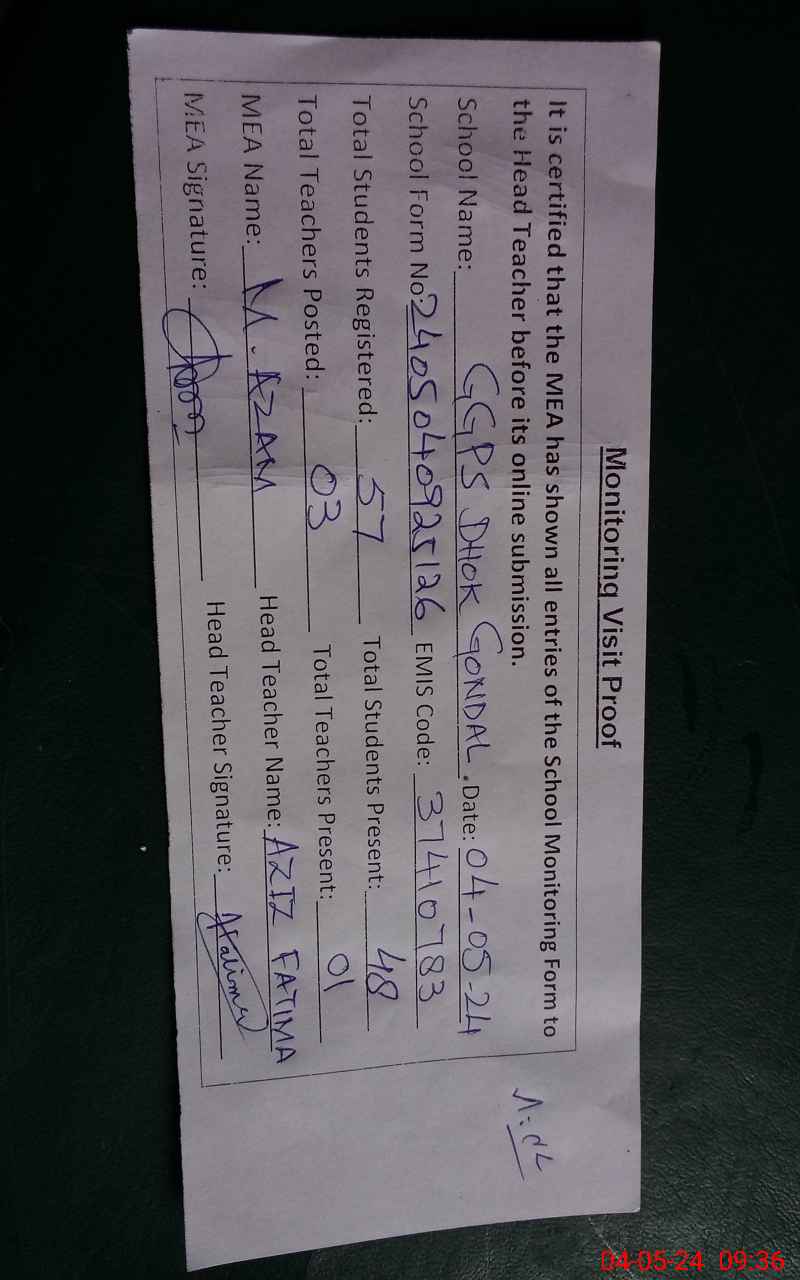 Monitoring Visit Proof
It is certified that the MEA has shown all entries of the School Monitoring Form to
the Head Teacher before its online submission.
School Name: GGPS DHOK GONDAL. Date: 04-05-24
School Form No: 2405040925126 EMIS Code: 37410783
Total Students Registered: 57 Total Students Present: 48
Total Teachers Posted: 03 Total Teachers Present: 01
MEA Name: M. AZAM Head Teacher Name: AZIZ FATIMA
MEA Signature: Head Teacher Signature:
04-05-24 09:36